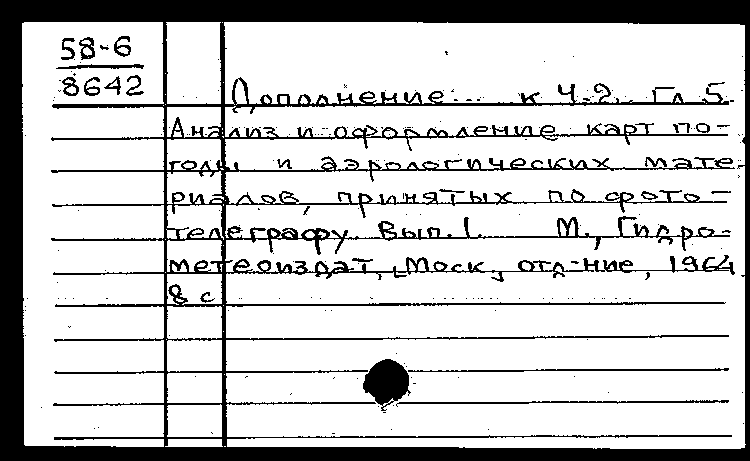 58-6
8642
Дополнение... к Ч.2. Гл 5.
Анализ и оформление карт по-
годы и аэрологических мате-
риалов, принятых по фото-
телеграфу. Вып. 1. М., Гидро-
метеоиздат, [Моск. отд-ние, 1964.
8 с